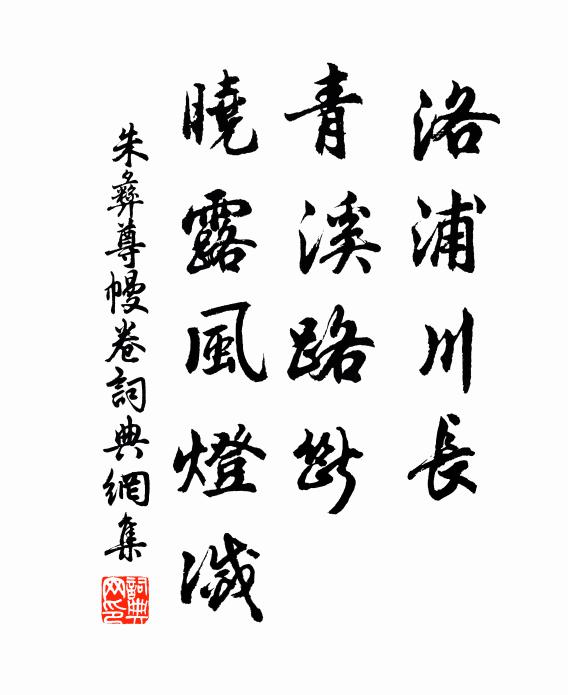 洛浦川長
青溪路斷
曉露風燈滅
朱彝尊幔卷詞典網集
詞典網印